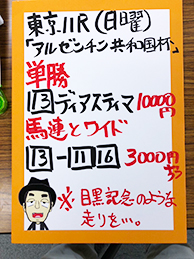 東京11R(日曜)
「アルゼンチン共和国杯」
単勝
13 ディアスティマ 10000円
馬連とワイド
13-11 16 3000円ずつ
※目黒記念のような
走りを…。